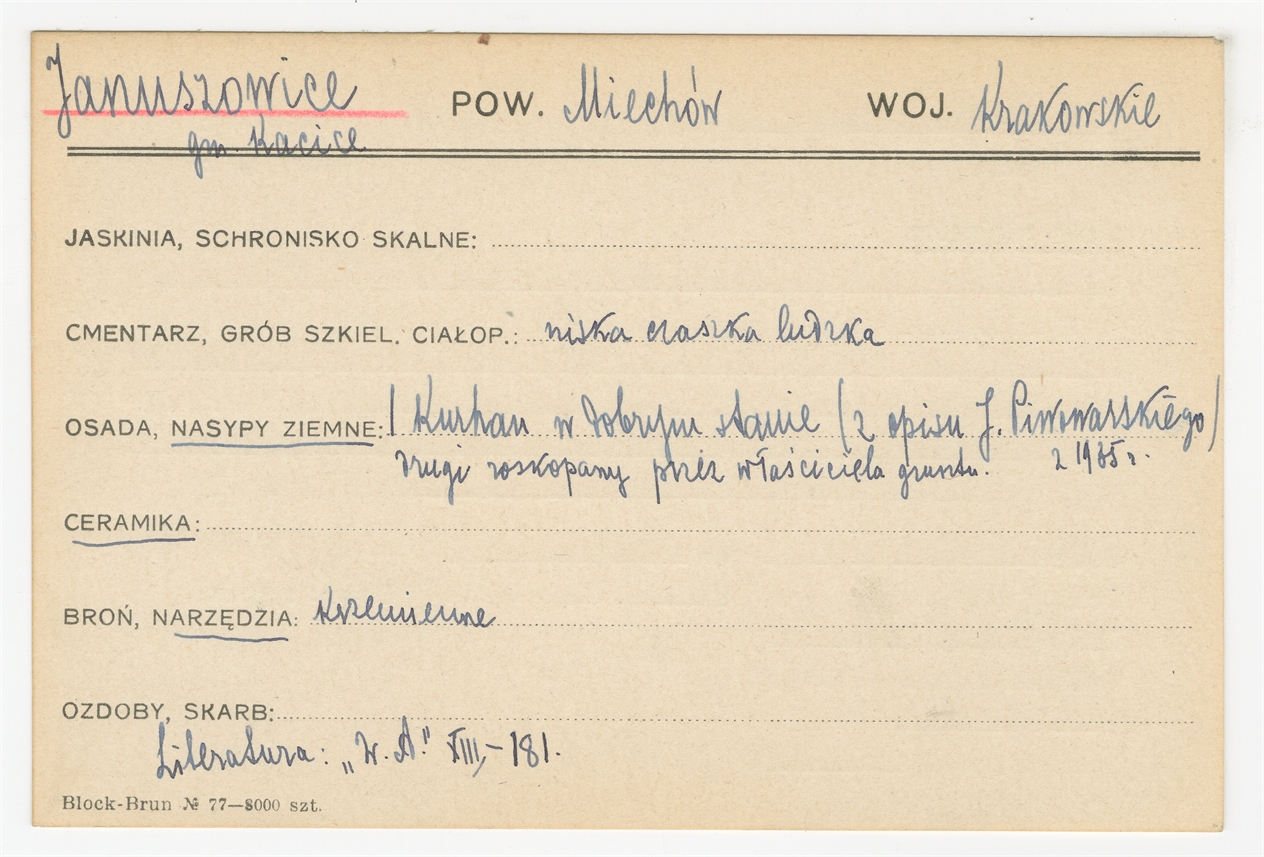 Januszowice POW. Miechów WOJ. Krakowskie
gm. Kacice
JASKINIA, SCHRONISKO SKALNE:
CMENTARZ, GRÓB SZKIEL. CIAŁOP.: niska czaszka ludzka
OSADA, NASYPY ZIEMNE: 1 Kurhan w dobrym stanie (z opisu J. Piwowarskiego)
drugi roskopany przez właściciela gruntu. z 1935 r.
CERAMIKA:
BROŃ, NARZĘDZIA: krzemienne
OZDOBY, SKARB:
Literatura: „W. A." XIII,-181.
Block-Brun № 77—8000 szt.